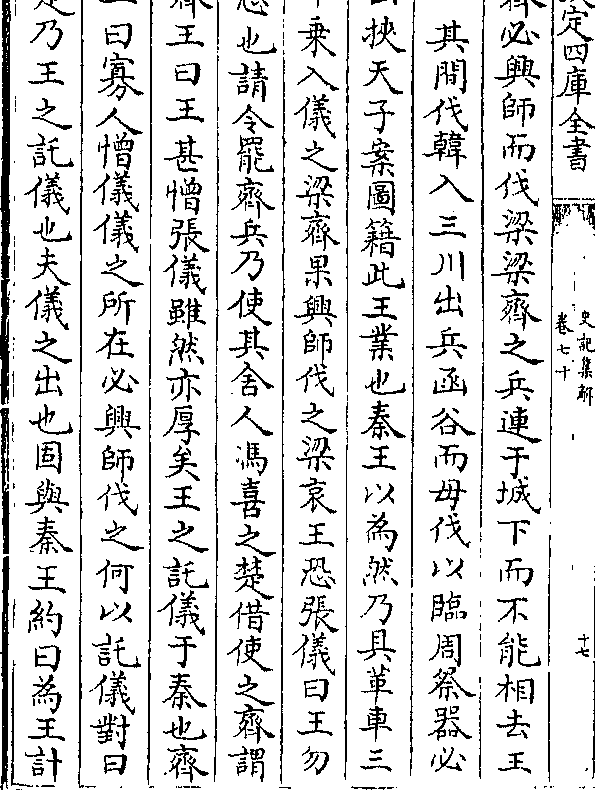 定四庫全書
史記集解
卷七十
十七
必興師而伐梁梁齊之兵連于城下而不能相去王
其間伐韓入三川出兵函谷而毋伐以臨周祭器必
挾天子案圖籍此王業也秦王以為然乃具革車三
乗入儀之梁齊果興師伐之梁哀王恐張儀曰王勿
也請令罷齊兵乃使其舍人馮喜之楚借使之齊謂
齊王曰王甚憎張儀雖然亦厚矣王之託儀于秦也齊
曰寡人憎儀儀之所在必興師伐之何以託儀對曰
乃王之託儀也夫儀之出也固與秦王約曰為王計